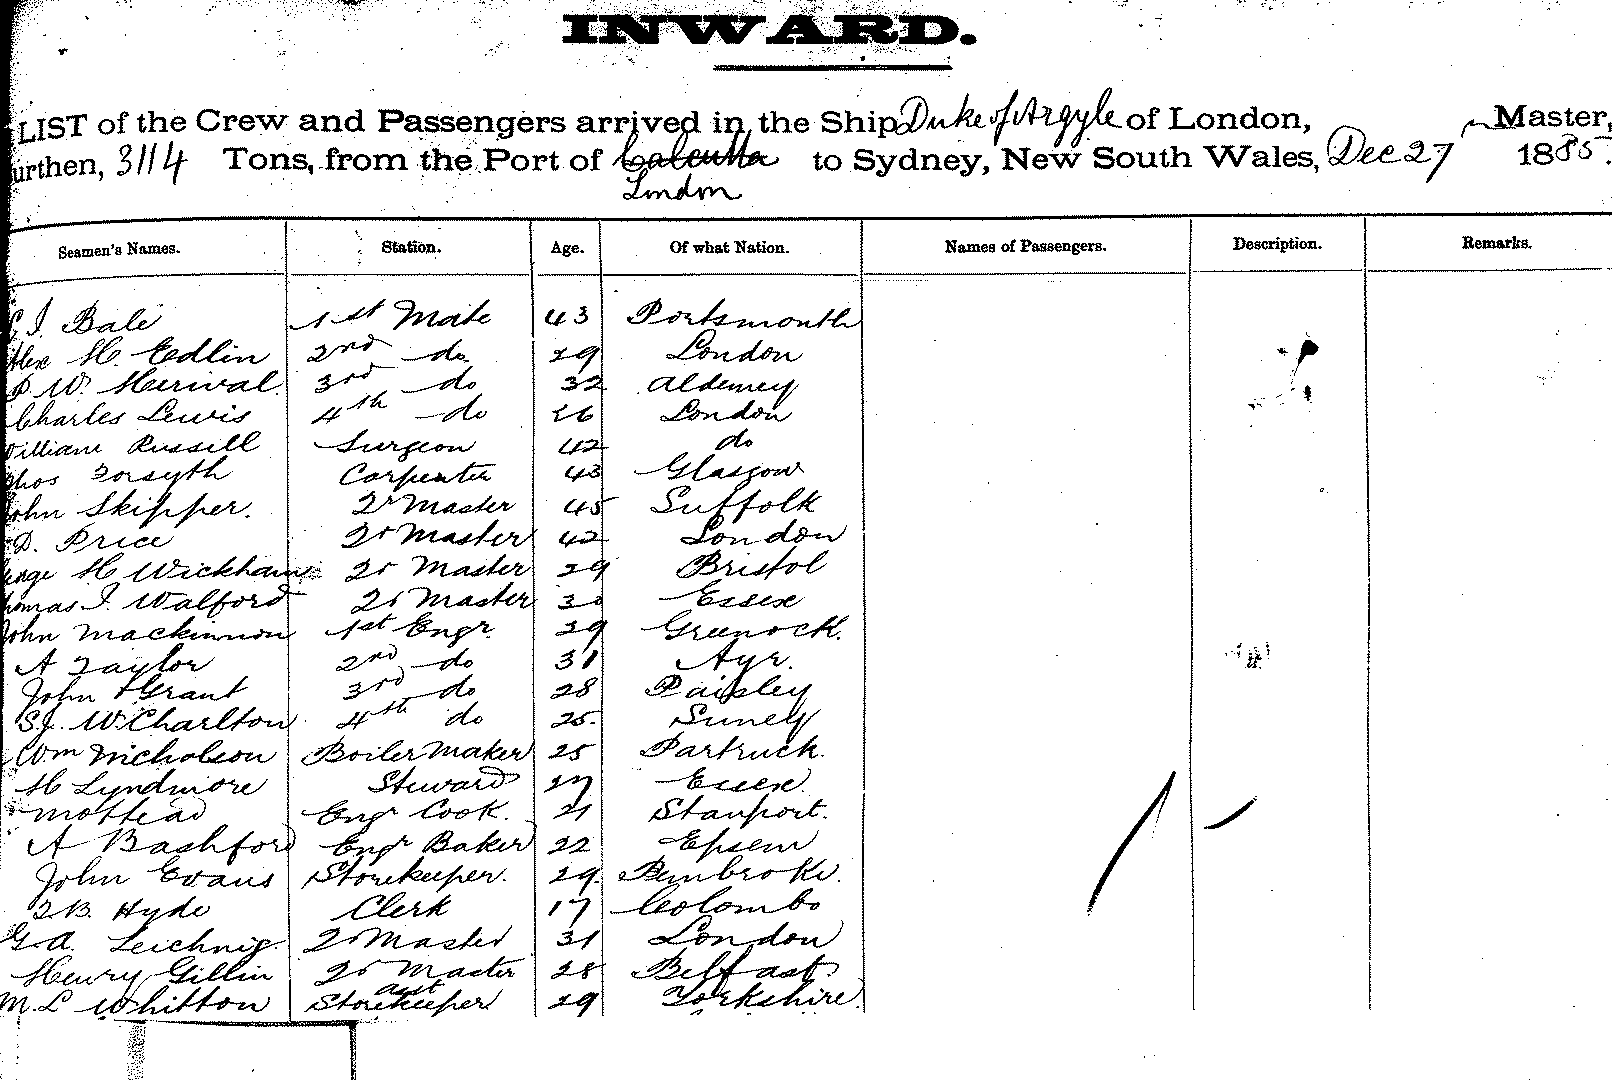 INWARD.
LIST of the Crew and Passengers arrived in the Ship Duke of Argyle of London, Master,
urthen, 3114 Tons, from the Port of Calcutta to Sydney, New South Wales, Dec 27 1885.
London
Seamen's Names. Station. Age. Of what Nation. Names of Passengers. Description. Remarks.
J. Bale 1st Mate 43 Portsmouth
Alex H. Edlin 2nd do 29 London
W. Merival 3rd do 32 Alderney
Charles Lewis 4th do 26 London
William Russell Surgeon 42 do
Thos Forsyth Carpenter 43 Glasgow
John Skipper. 2r Master 45 Suffolk
D. Price 2r Master 42 London
H Wickham 2r Master 29 Bristol
Thomas J. Walford 2r Master 30 Essex
John Mackinnon 1st Engr. 29 Greenock.
A Taylor 2nd do 31 Ayr.
John Grant 3rd do 28 Paisley
S.J. W. Charlton 4th do 25 Surrey
Wm Nicholson Boiler Maker 25 Partruck.
H Lyndmore Steward 27 Essex
Engr Cook. 21
A Bashford Engr Baker 22 Epsem
John Evans Storekeeper. 29 Pembroke.
B. Hyde Clerk 17 Colombo
G. A. Leichnig. 2r Master 31 London
Henry Gillin 2r Master 28 Belfast
asst
M. L Whitton Storekeeper 29 Yorkshire